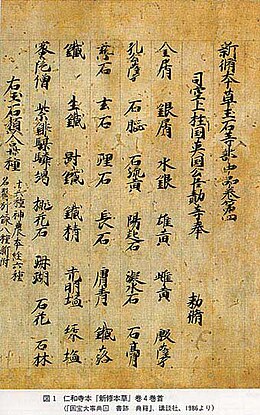 新脩本草玉石等部中品卷第四
司空上柱國英國公臣勣等奉 勅脩
金屑 銀屑 水銀 雄黃 雌黃 殷孽
孔公孽 石腦 石硫黃 陽起石 凝水石 石膏
慈石 玄石 理石 長石 膚青 鐵落
鐵 生鐵 剛鐵 鐵精 光明塩 緑塩
蜜陀僧 紫鉚騏驎竭 桃花石 珊瑚 石花 石牀
右玉石類合卅種 十六種神農本經 六種
名醫別錄 八種新附
図1 仁和寺本『新修本草』巻4巻首
(『国宝大事典 三 書跡 典籍』、講談社、1986より)